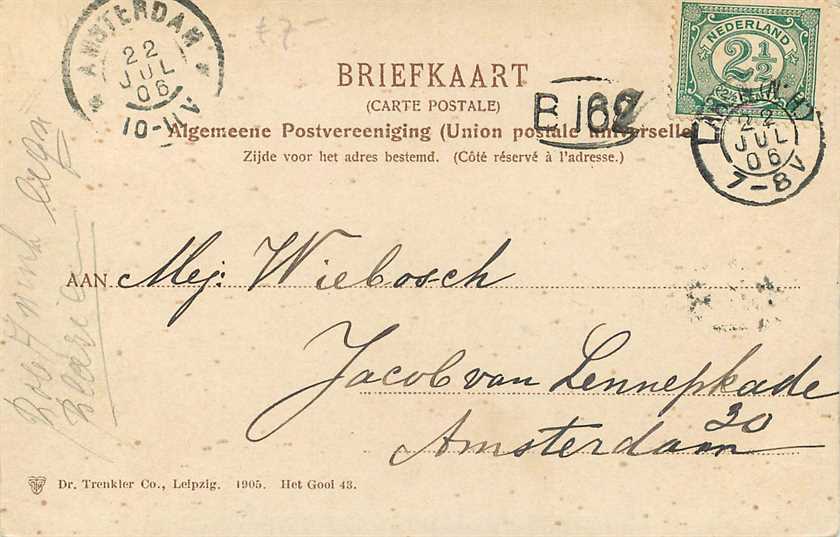 AMSTERDAM
22
JUL
06
10-11V
£7-
BRIEFKAART
(CARTE POSTALE)
Algemeene Postvereeniging (Union postale universelle)
Zijde voor het adres bestemd. (Côté réservé à l'adresse.)
B 162
NEDERLAND
2½
22
JUL
06
7-8V
AAN Mej: Wiebosch
Jacob van Lennepkade
30
Amsterdam
Dr. Trenkler Co., Leipzig. 1905. Het Gooi 43.